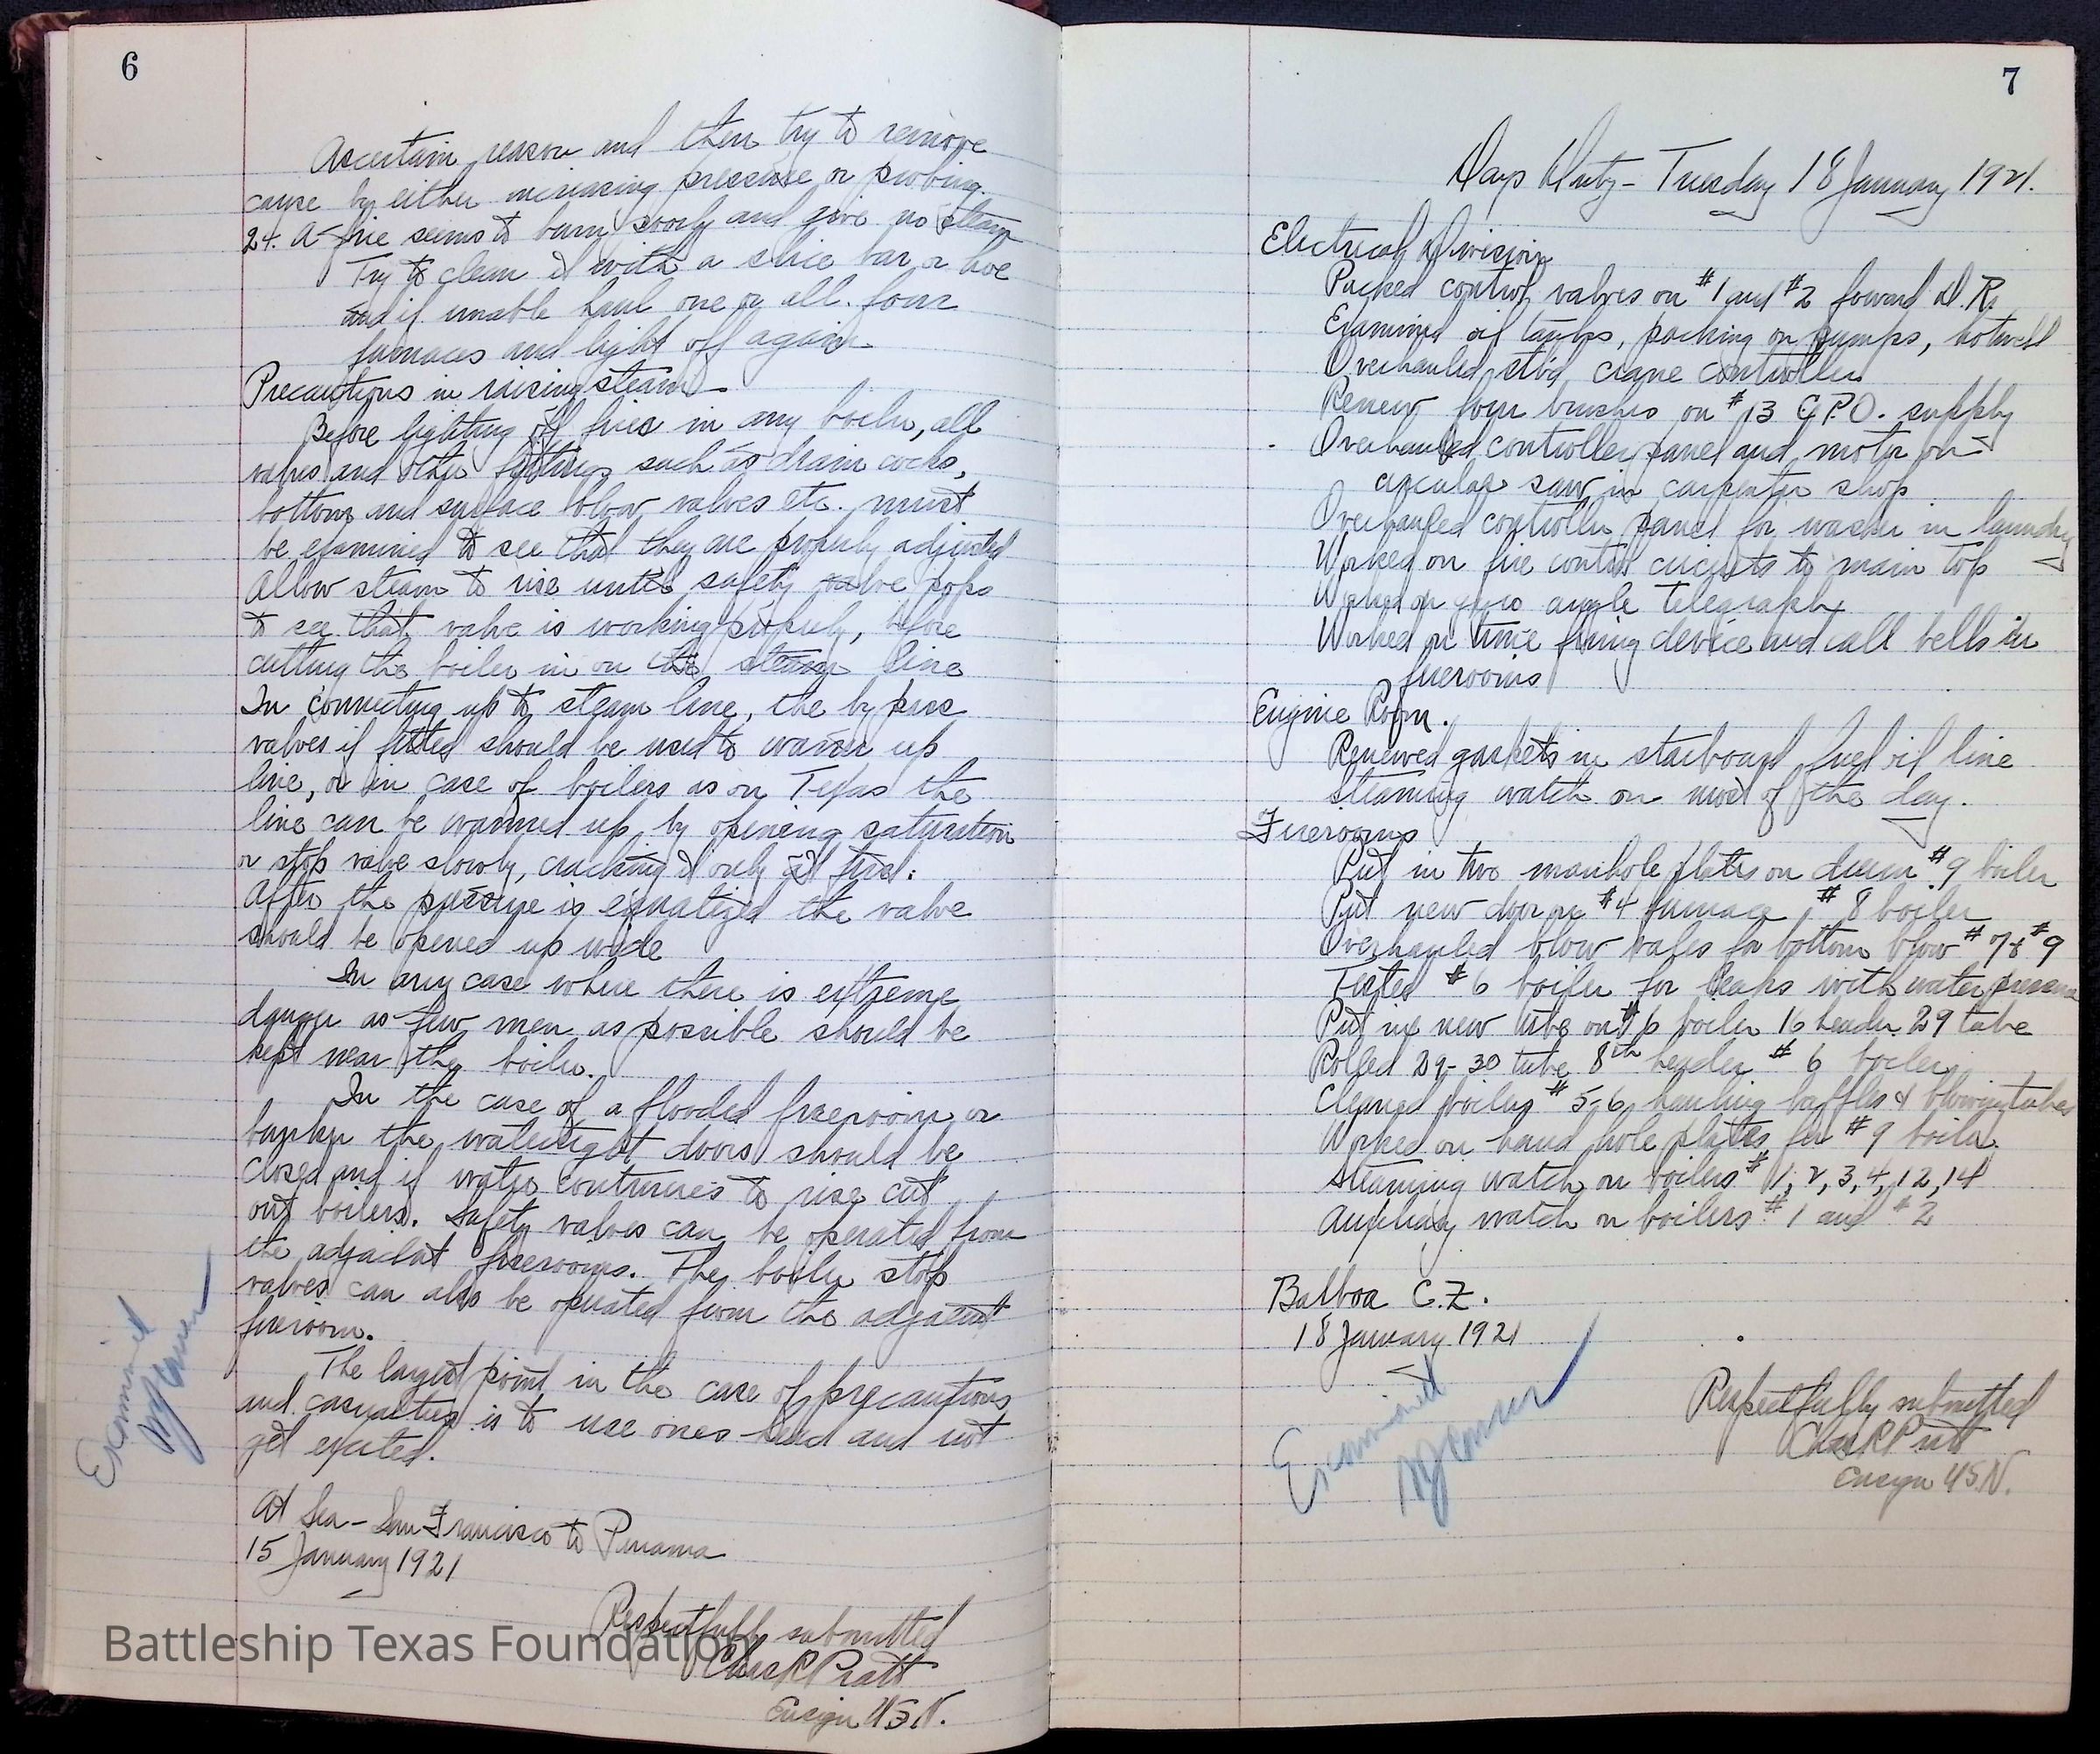 6
Ascertain reason and then try to remove
cause by either increasing pressure or probing.
24. A fire seems to burn poorly and give no steam
Try to clean it with a slice bar or hoe
and if unable haul one or all four
furnaces and light off again.
Precautions in raising steam
Before lighting off fires in any boiler, all
valves and other fittings such as drain cocks,
bottom and surface blow valves etc. must
be examined to see that they are properly adjusted
Allow steam to rise until safety valve pops
to see that valve is working properly, before
cutting the boiler in on the steam line
In connecting up to steam line, the by pass
valves if fitted should be used to warm up
line, or in case of boilers as on Texas the
line can be warmed up by opening saturation
or stop valve slowly, cracking it only at first.
After the pressure is equalized the valve
should be opened up wide
In any case where there is extreme
danger as few men as possible should be
kept near the boiler.
In the case of a flooded fireroom or
bunker the watertight doors should be
closed and if water continues to rise cut
out boilers. Safety valves can be operated from
the adjacent firerooms. The boiler stop
valves can also be operated from the adjacent
fireroom.
The largest point in the case of precautions
and casualties is to use ones head and not
get excited.
At Sea - San Francisco to Panama
15 January 1921
Respectfully submitted
Chas R Pratt
Ensign U S N.
Examined
Battleship Texas Foundation
7
Days Duty - Tuesday 18 January 1921.
Electrical Division
Packed control valves on #1 and #2 foward D. R.
Examined oil tanks, packing on pumps, hotwell
Overhauled stb'd crane controller
Renew four brushes on #13 G.P.O. supply
Overhauled controller panel and motor on
circular saw in carpenter shop
Overhauled controller panel for washer in laundry
Worked on fire control circuits to main top
Worked on gyro angle telegraph
Worked on time firing device and call bells in
firerooms
Engine Room.
Renewed gaskets in starboard fuel oil line
Steaming watch on most of the day.
Firerooms
Put in two manhole plates on drum #9 boiler
Put new door on #4 furnace, #8 boiler
Overhauled blow valves for bottom blow #7 & #9
Tested #6 boiler for leaks with water pressure
Put in new tube on #6 boiler 16 header 29 tube
Rolled 29-30 tube 8th header #6 boiler
Cleaned boilers #5-6, hauling baffles & blowing tubes
Worked on hand hole plates for #9 boiler.
Steaming watch on boilers #1, 2, 3, 4, 12, 14
Auxiliary watch on boilers #1 and #2
Balboa C.Z.
18 January 1921
Examined
Respectfully submitted
Chas R Pratt
Ensign U S N.